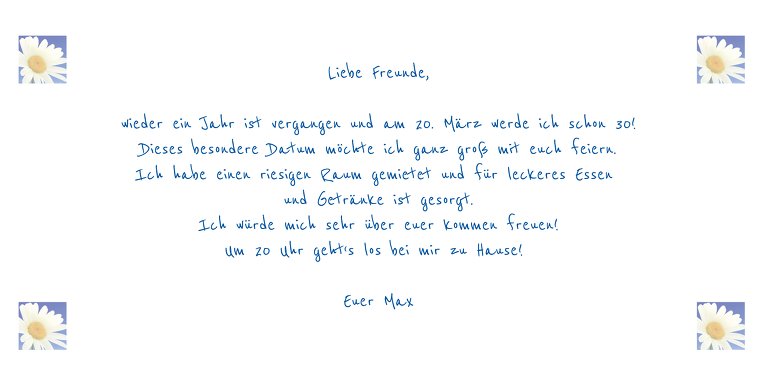 Liebe Freunde,
wieder ein Jahr ist vergangen und am 20. März werde ich schon 30!
Dieses besondere Datum möchte ich ganz groß mit euch feiern.
Ich habe einen riesigen Raum gemietet und für leckeres Essen
und Getränke ist gesorgt.
Ich würde mich sehr über euer kommen freuen!
Um 20 Uhr geht's los bei mir zu Hause!
Euer Max